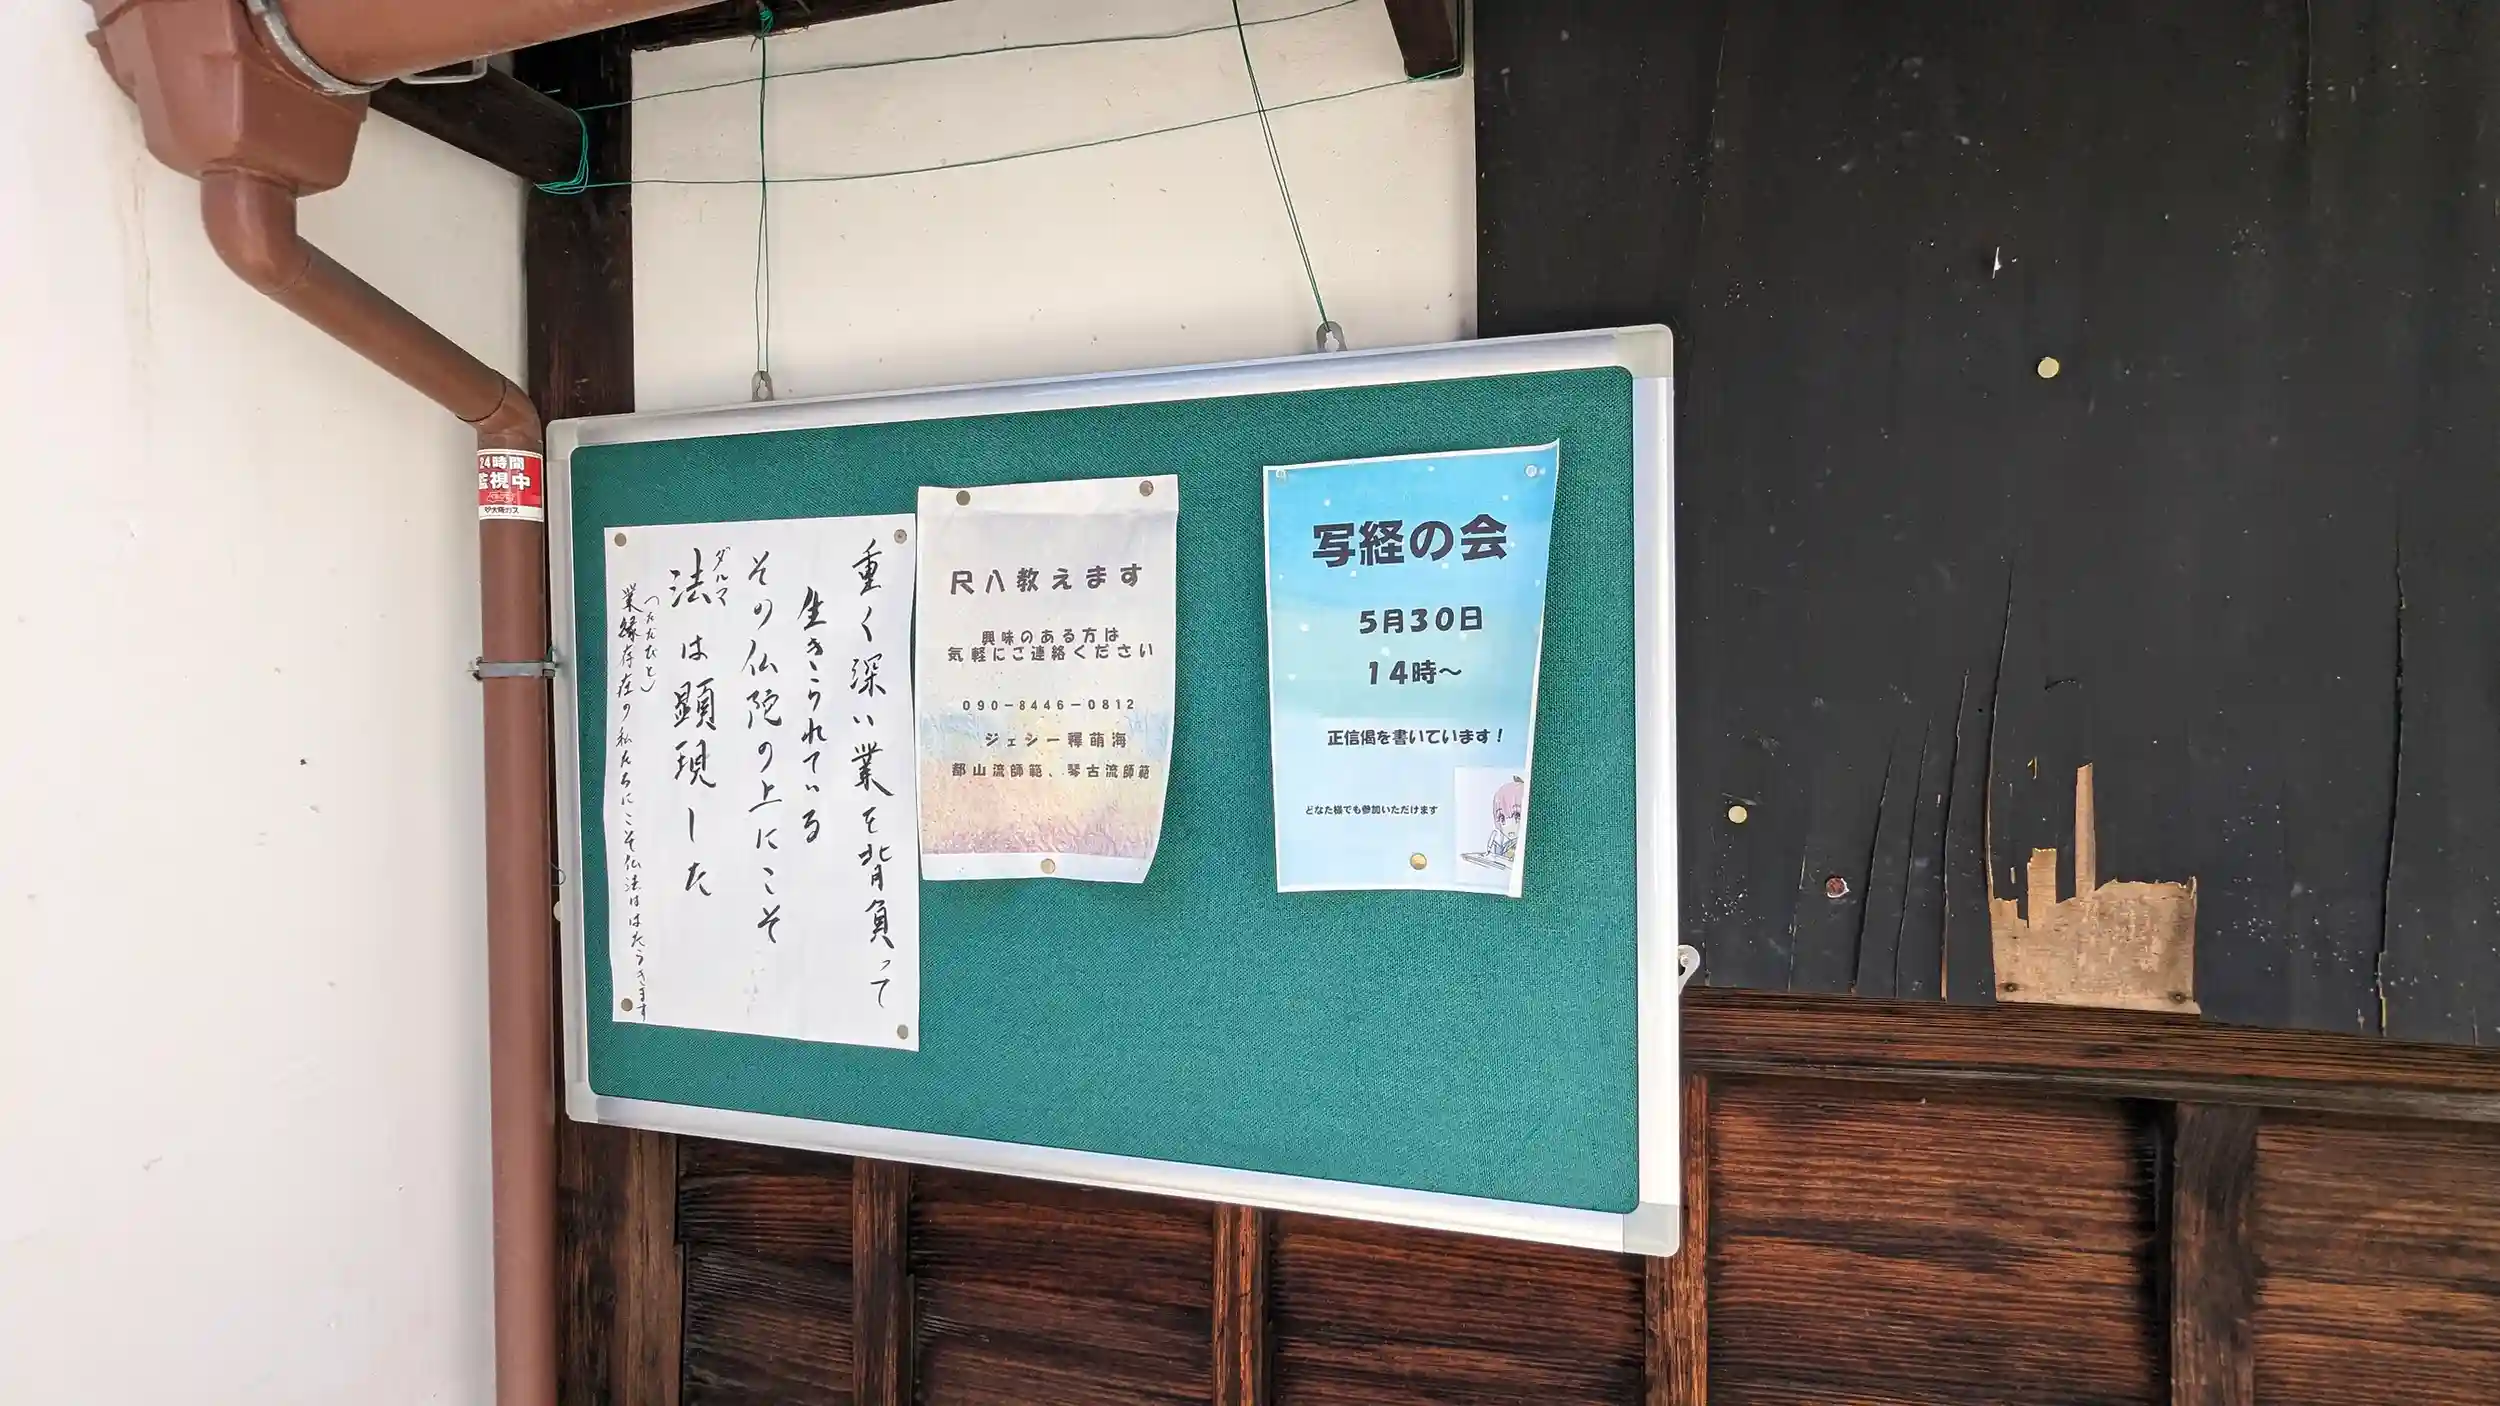 24時間
監視中
大阪ガス
重く深い業を背負って
生きられている
その仏陀の上にこそ
ダルマ
法は顕現した
(ただびと)
業縁存在の私たちにこそ仏法ははたらきます
尺八教えます
興味のある方は
気軽にご連絡ください
090-8446-0812
ジェシー釋萌海
都山流師範、琴古流師範
写経の会
5月30日
14時～
正信偈を書いています！
どなた様でも参加いただけます